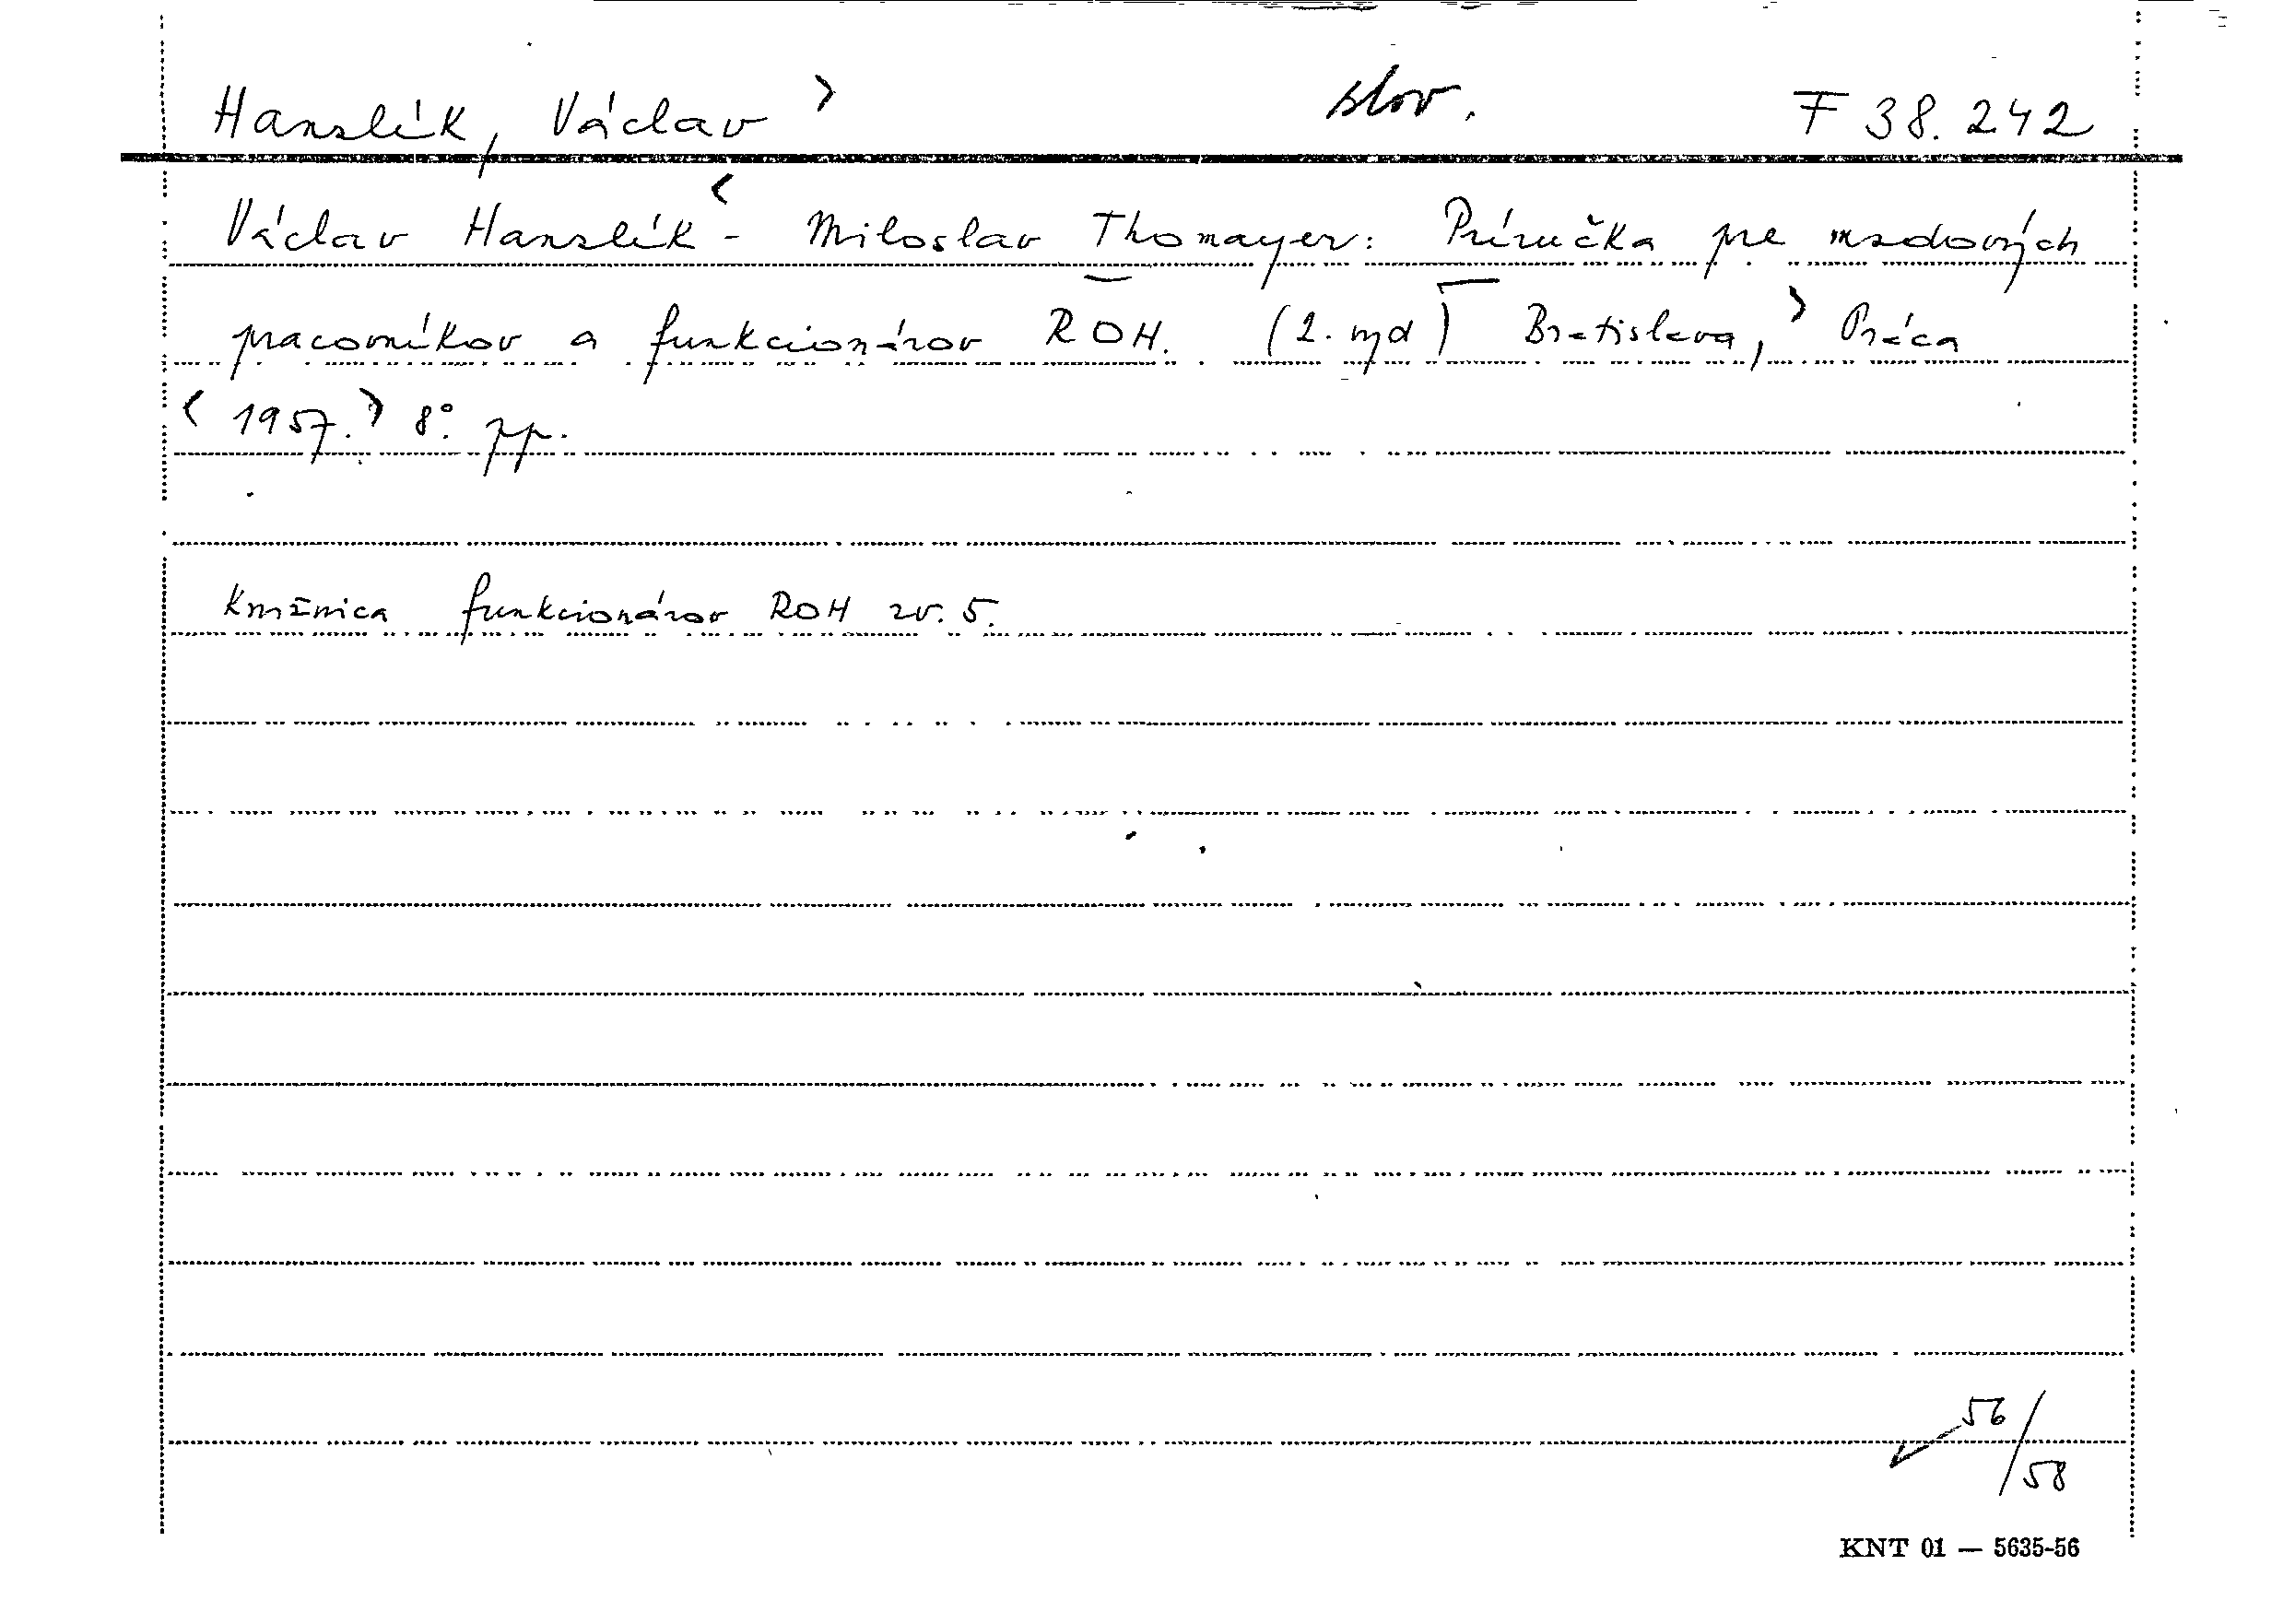 Hanslík, Václav > slov. F 38.242
Václav Hanslík - Miloslav Thomayer: Príručka pre mzdových
pracovníkov a funkcionárov ROH. (2. vyd) Bratislava, Práca
1957. 8° pp.
Knižnica funkcionárov ROH zv. 5.
56/58
KNT 01 — 5635-56